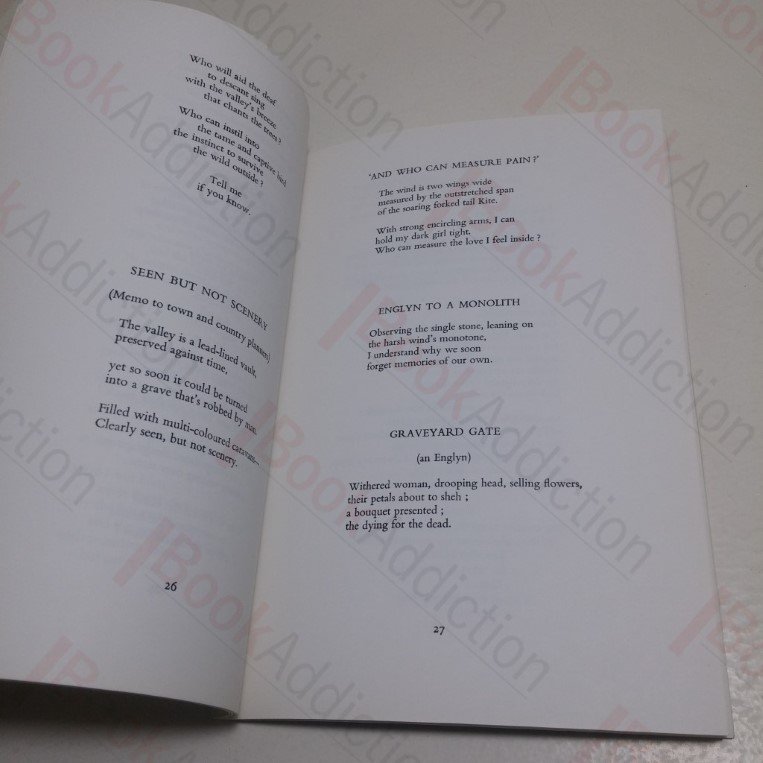 Who will aid the deaf
to descant sing
with the valley's breeze
that chants the trees?
Who can instil into
the tame and captive bird
the instinct to survive
the wild outside?
Tell me
if you know.
SEEN BUT NOT SCENERY
(Memo to town and country planners)
The valley is a lead-lined vault,
preserved against time,
yet so soon it could be turned
into a grave that's robbed by man.
Filled with multi-coloured caravans—
Clearly seen, but not scenery.
26
'AND WHO CAN MEASURE PAIN?'
The wind is two wings wide
measured by the outstretched span
of the soaring forked tail Kite.
With strong encircling arms, I can
hold my dark girl tight.
Who can measure the love I feel inside ?
ENGLYN TO A MONOLITH
Observing the single stone, leaning on
the harsh wind's monotone,
I understand why we soon
forget memories of our own.
GRAVEYARD GATE
(an Englyn)
Withered woman, drooping head, selling flowers,
their petals about to sheh ;
a bouquet presented ;
the dying for the dead.
27
BookAddiction